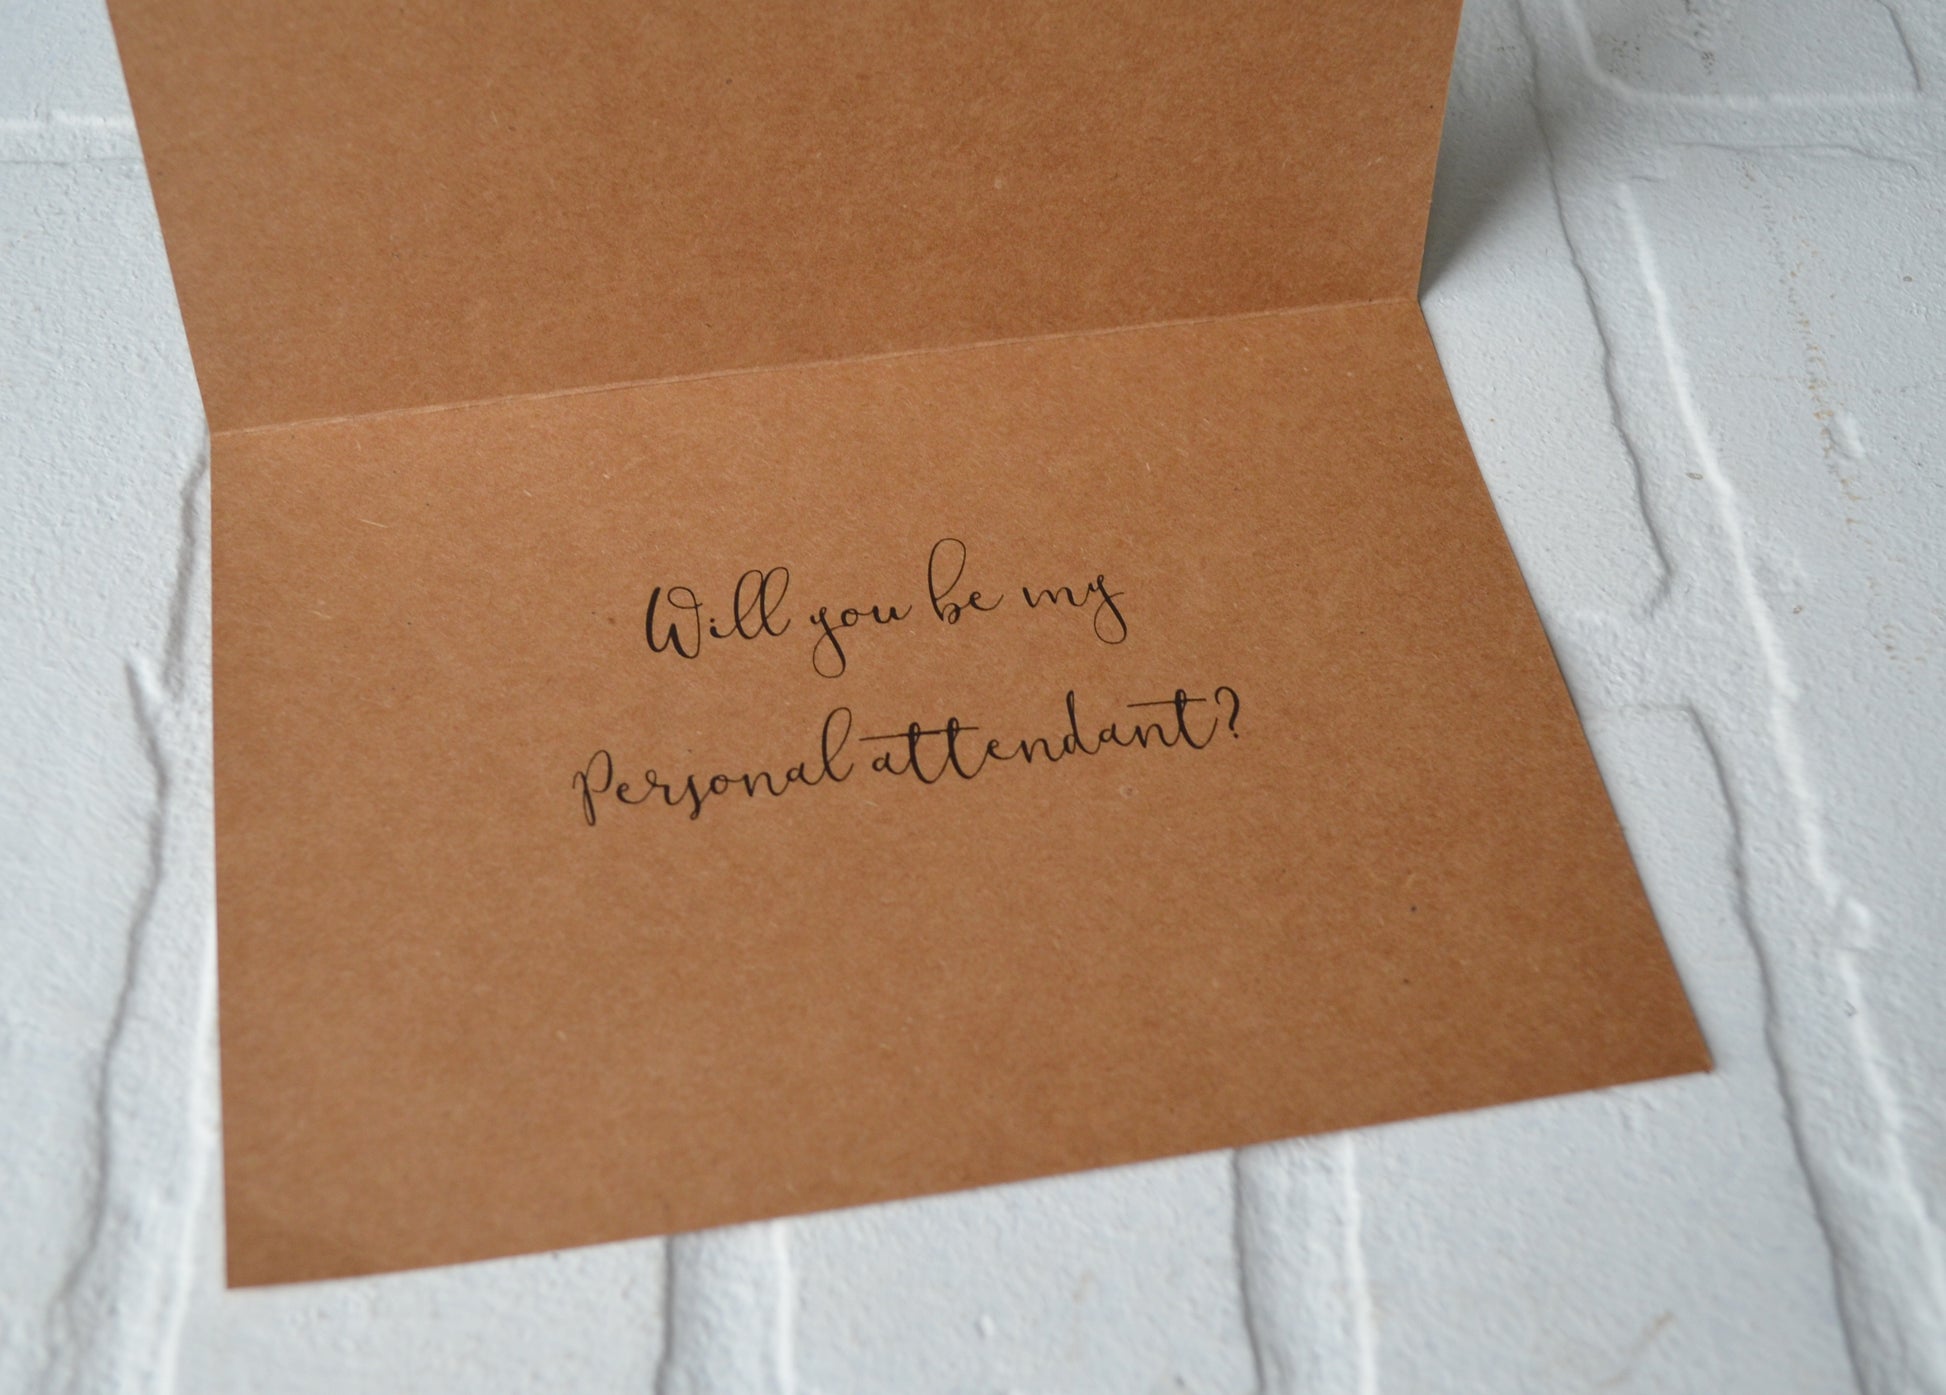 Will you be my
Personal attendant?